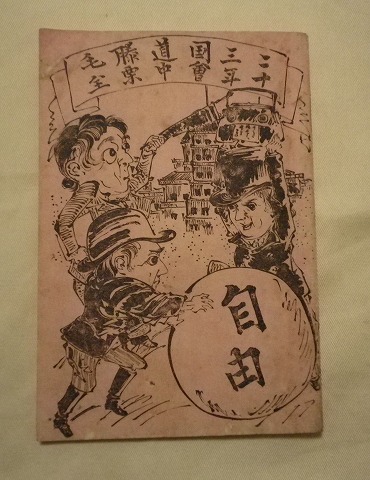 二十
三年
国會
道中
膝栗
毛全
自由